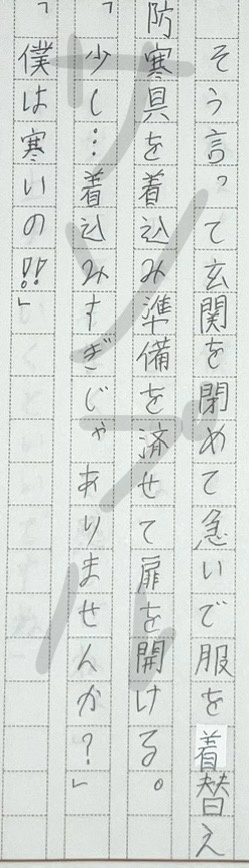 そう言って玄関を閉めて急いで服を着替え
防寒具を着込み準備を済せて扉を開ける。
「少し…着込みすぎじゃありませんか？」
「僕は寒いの!!」
サンプル